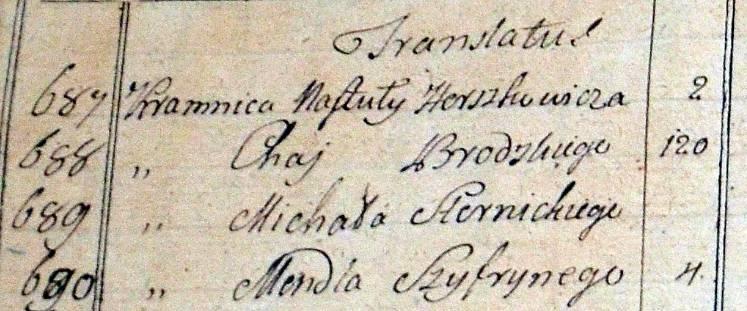 Translatus
687 Kramnica Naftuły Herszkowicza 2
688 „ Chaj Brodzkiego 120
689 „ Michała Sternickiego
690 „ Mendla Szyfrynego 4